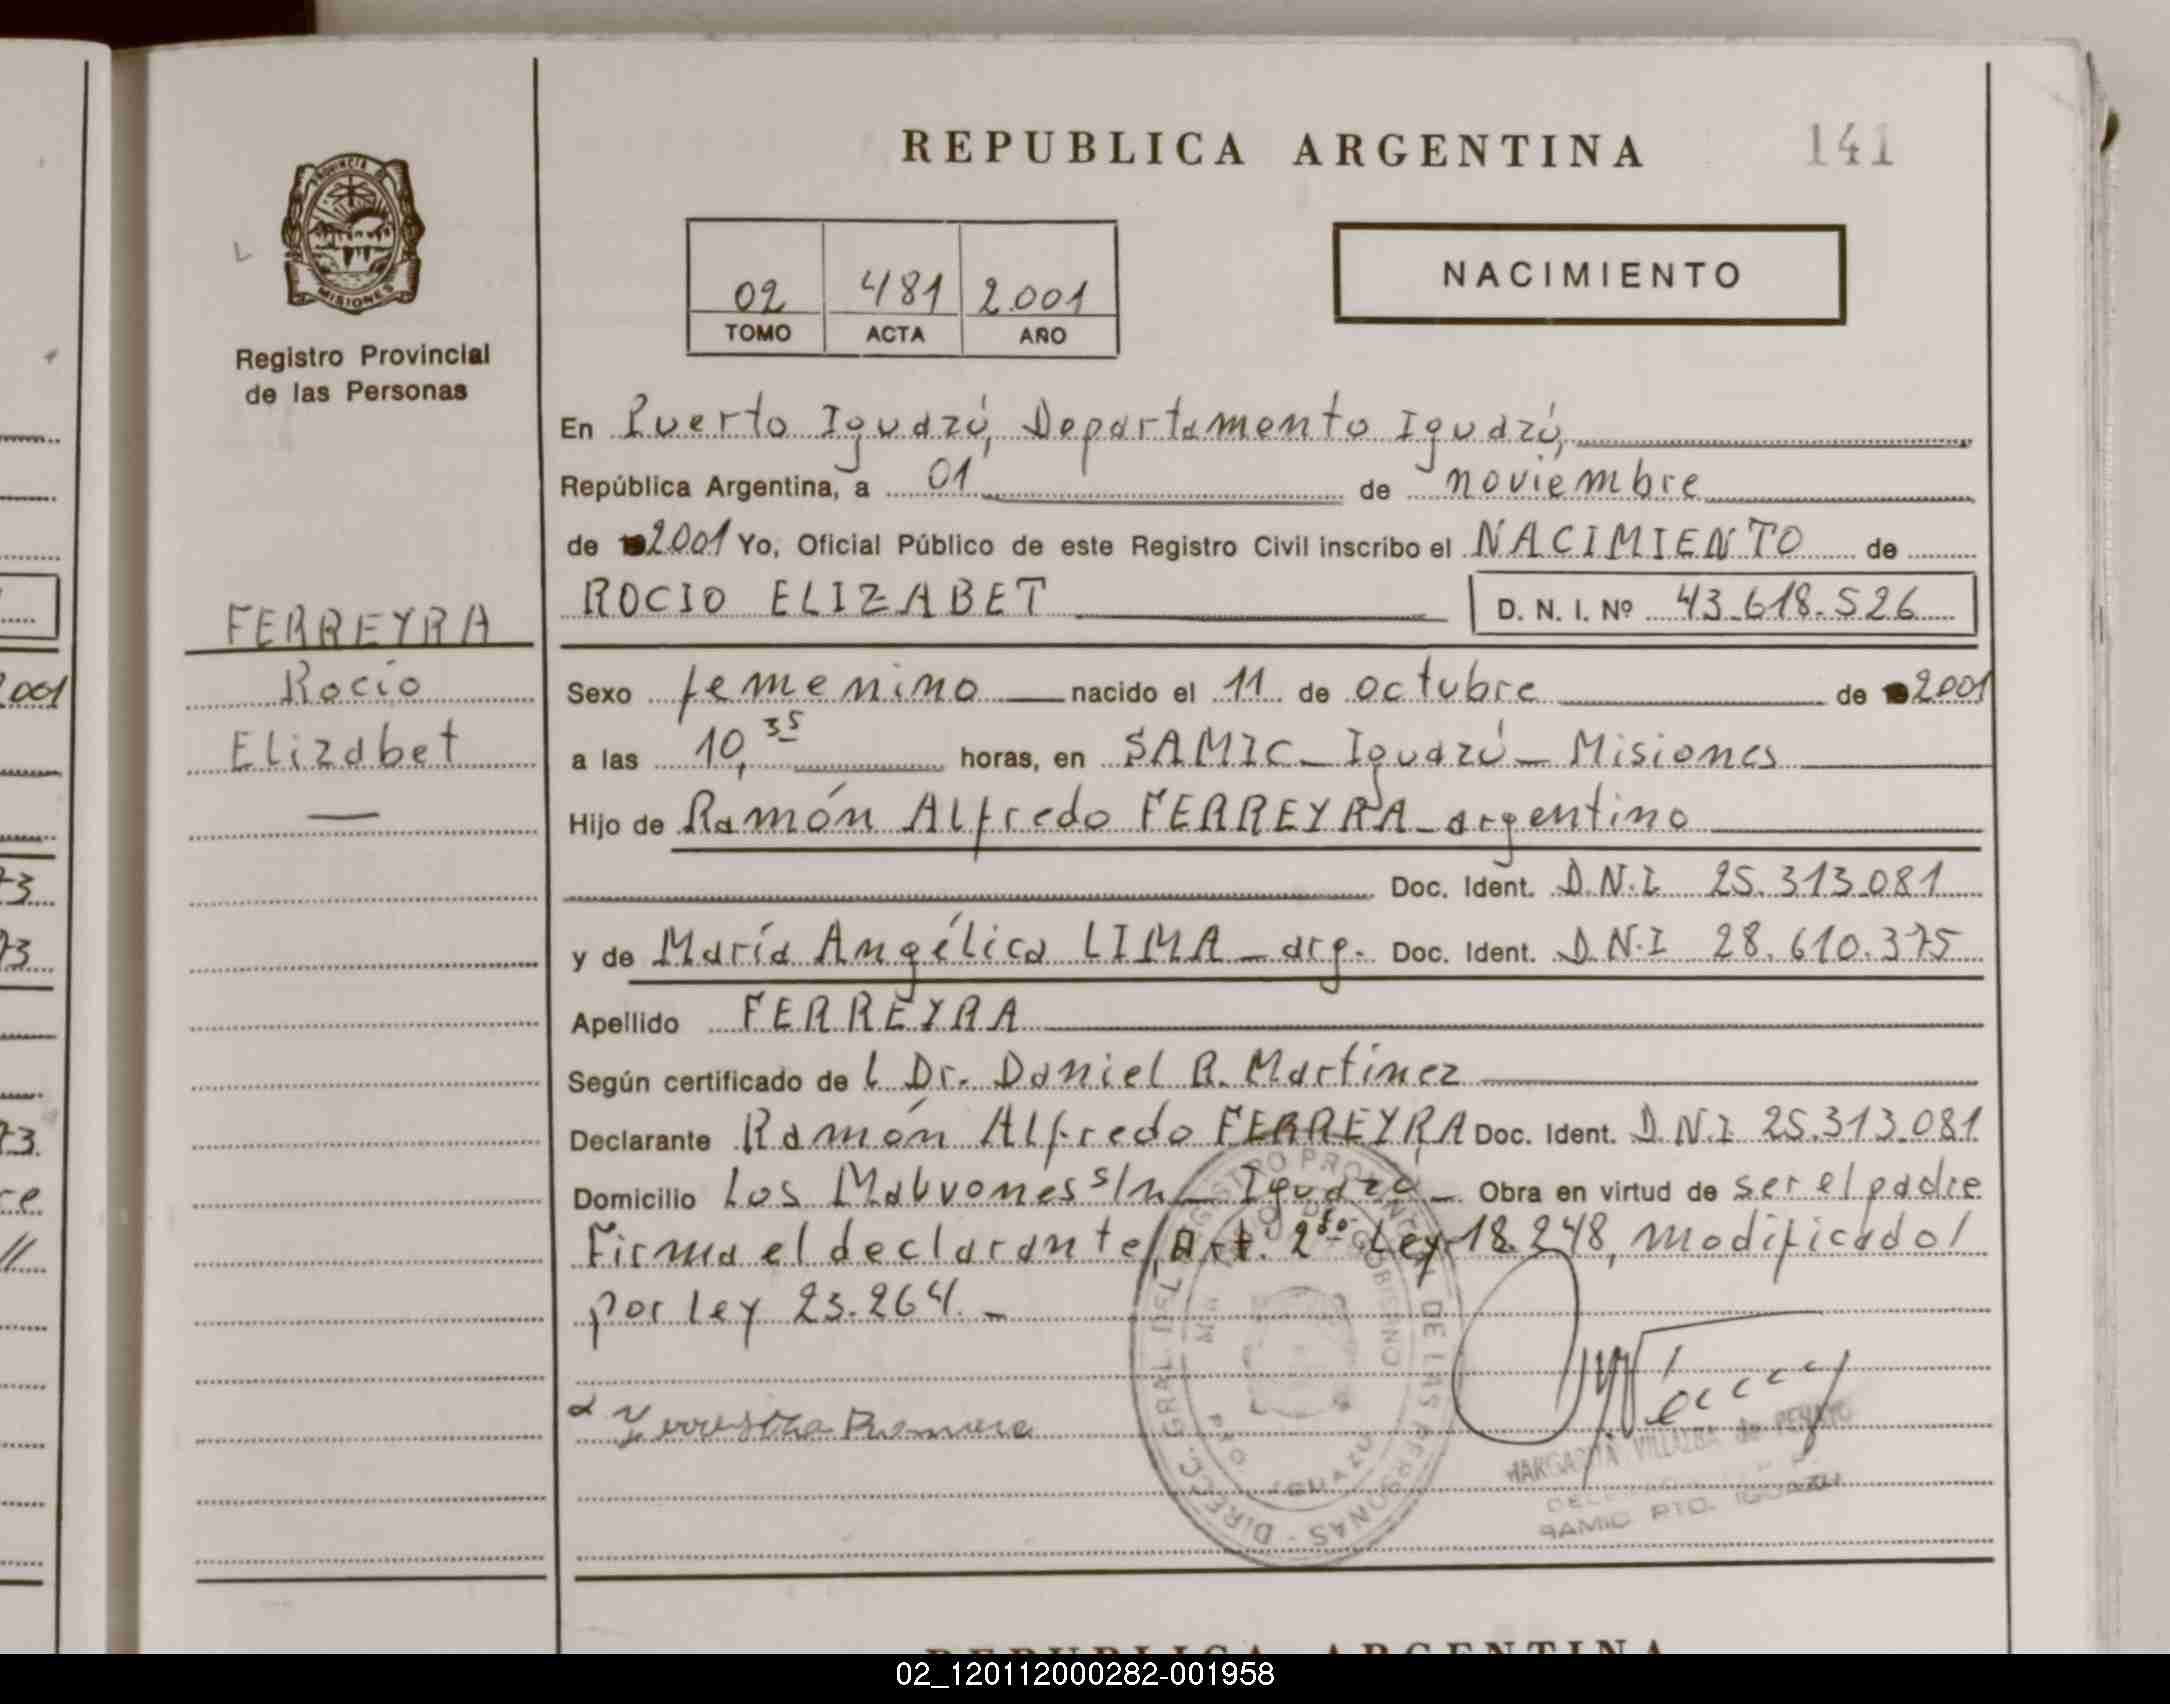 REPUBLICA ARGENTINA
141
PROVINCIA DE
MISIONES
Registro Provincial
de las Personas
02 481 2.001
TOMO ACTA AÑO
NACIMIENTO
En Puerto Iguazú, Departamento Iguazú,
República Argentina, a 01 de noviembre
de 2001 Yo, Oficial Público de este Registro Civil inscribo el NACIMIENTO de
ROCIO ELIZABET D. N. I. Nº 43.618.526
FERREYRA
Rocio
Elizabet
Sexo femenino nacido el 11 de octubre de 2001
a las 10,35 horas, en SAMIC - Iguazú - Misiones
Hijo de Ramón Alfredo FERREYRA - argentino
Doc. Ident. D.N.I 25.313.081
y de María Angélica LIMA - arg. Doc. Ident. D.N.I 28.610.375
Apellido FERREYRA
Según certificado de l Dr. Daniel R. Martínez
Declarante Ramón Alfredo FERREYRA Doc. Ident. D.N.I 25.313.081
Domicilio Los s/n - Iguazú - Obra en virtud de ser el padre
Firma el declarante, Art. 2do Ley 18.248, modificado/
por Ley 23.264.-
DIRECC. GRAL. DEL REGISTRO PROVINCIAL DE LAS PERSONAS
MIN. DE GOBIERNO
PTO. IGUAZU
MARGARITA VILLALBA de
SAMIC PTO. IGUAZU
2001
REPUBLICA ARGENTINA
02_120112000282-001958